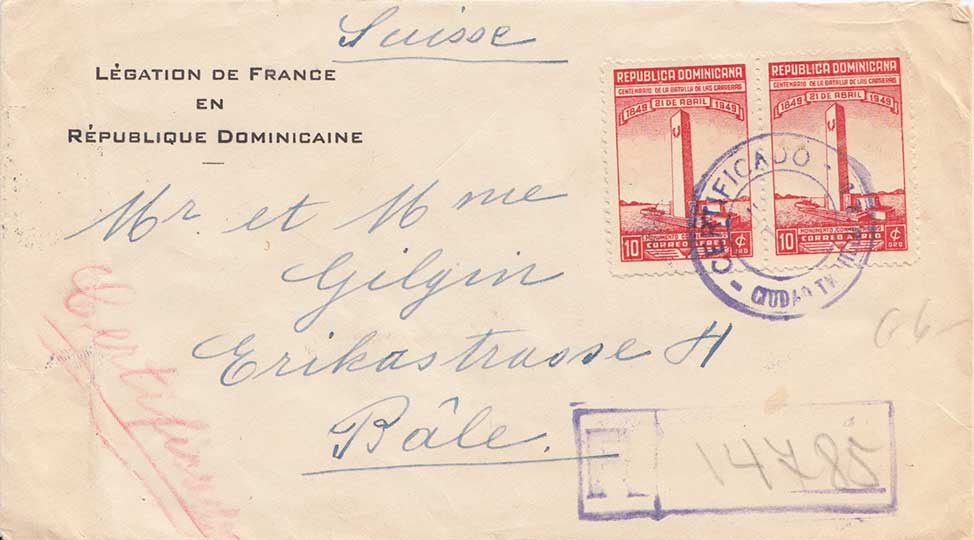 Suisse
LÉGATION DE FRANCE
EN
RÉPUBLIQUE DOMINICAINE
REPUBLICA DOMINICANA
CENTENARIO DE LA BATALLA DE LAS CARRERAS
1849 21 DE ABRIL 1949
10 CORREO AEREO ¢ ORO
REPUBLICA DOMINICANA
CENTENARIO DE LA BATALLA DE LAS CARRERAS
1849 21 DE ABRIL 1949
10 CORREO AEREO ¢ ORO
CERTIFICADO
CIUDAD TRUJILLO
Mr et Mme
Gilgin
Erikastrasse H
Bâle.
R 14785